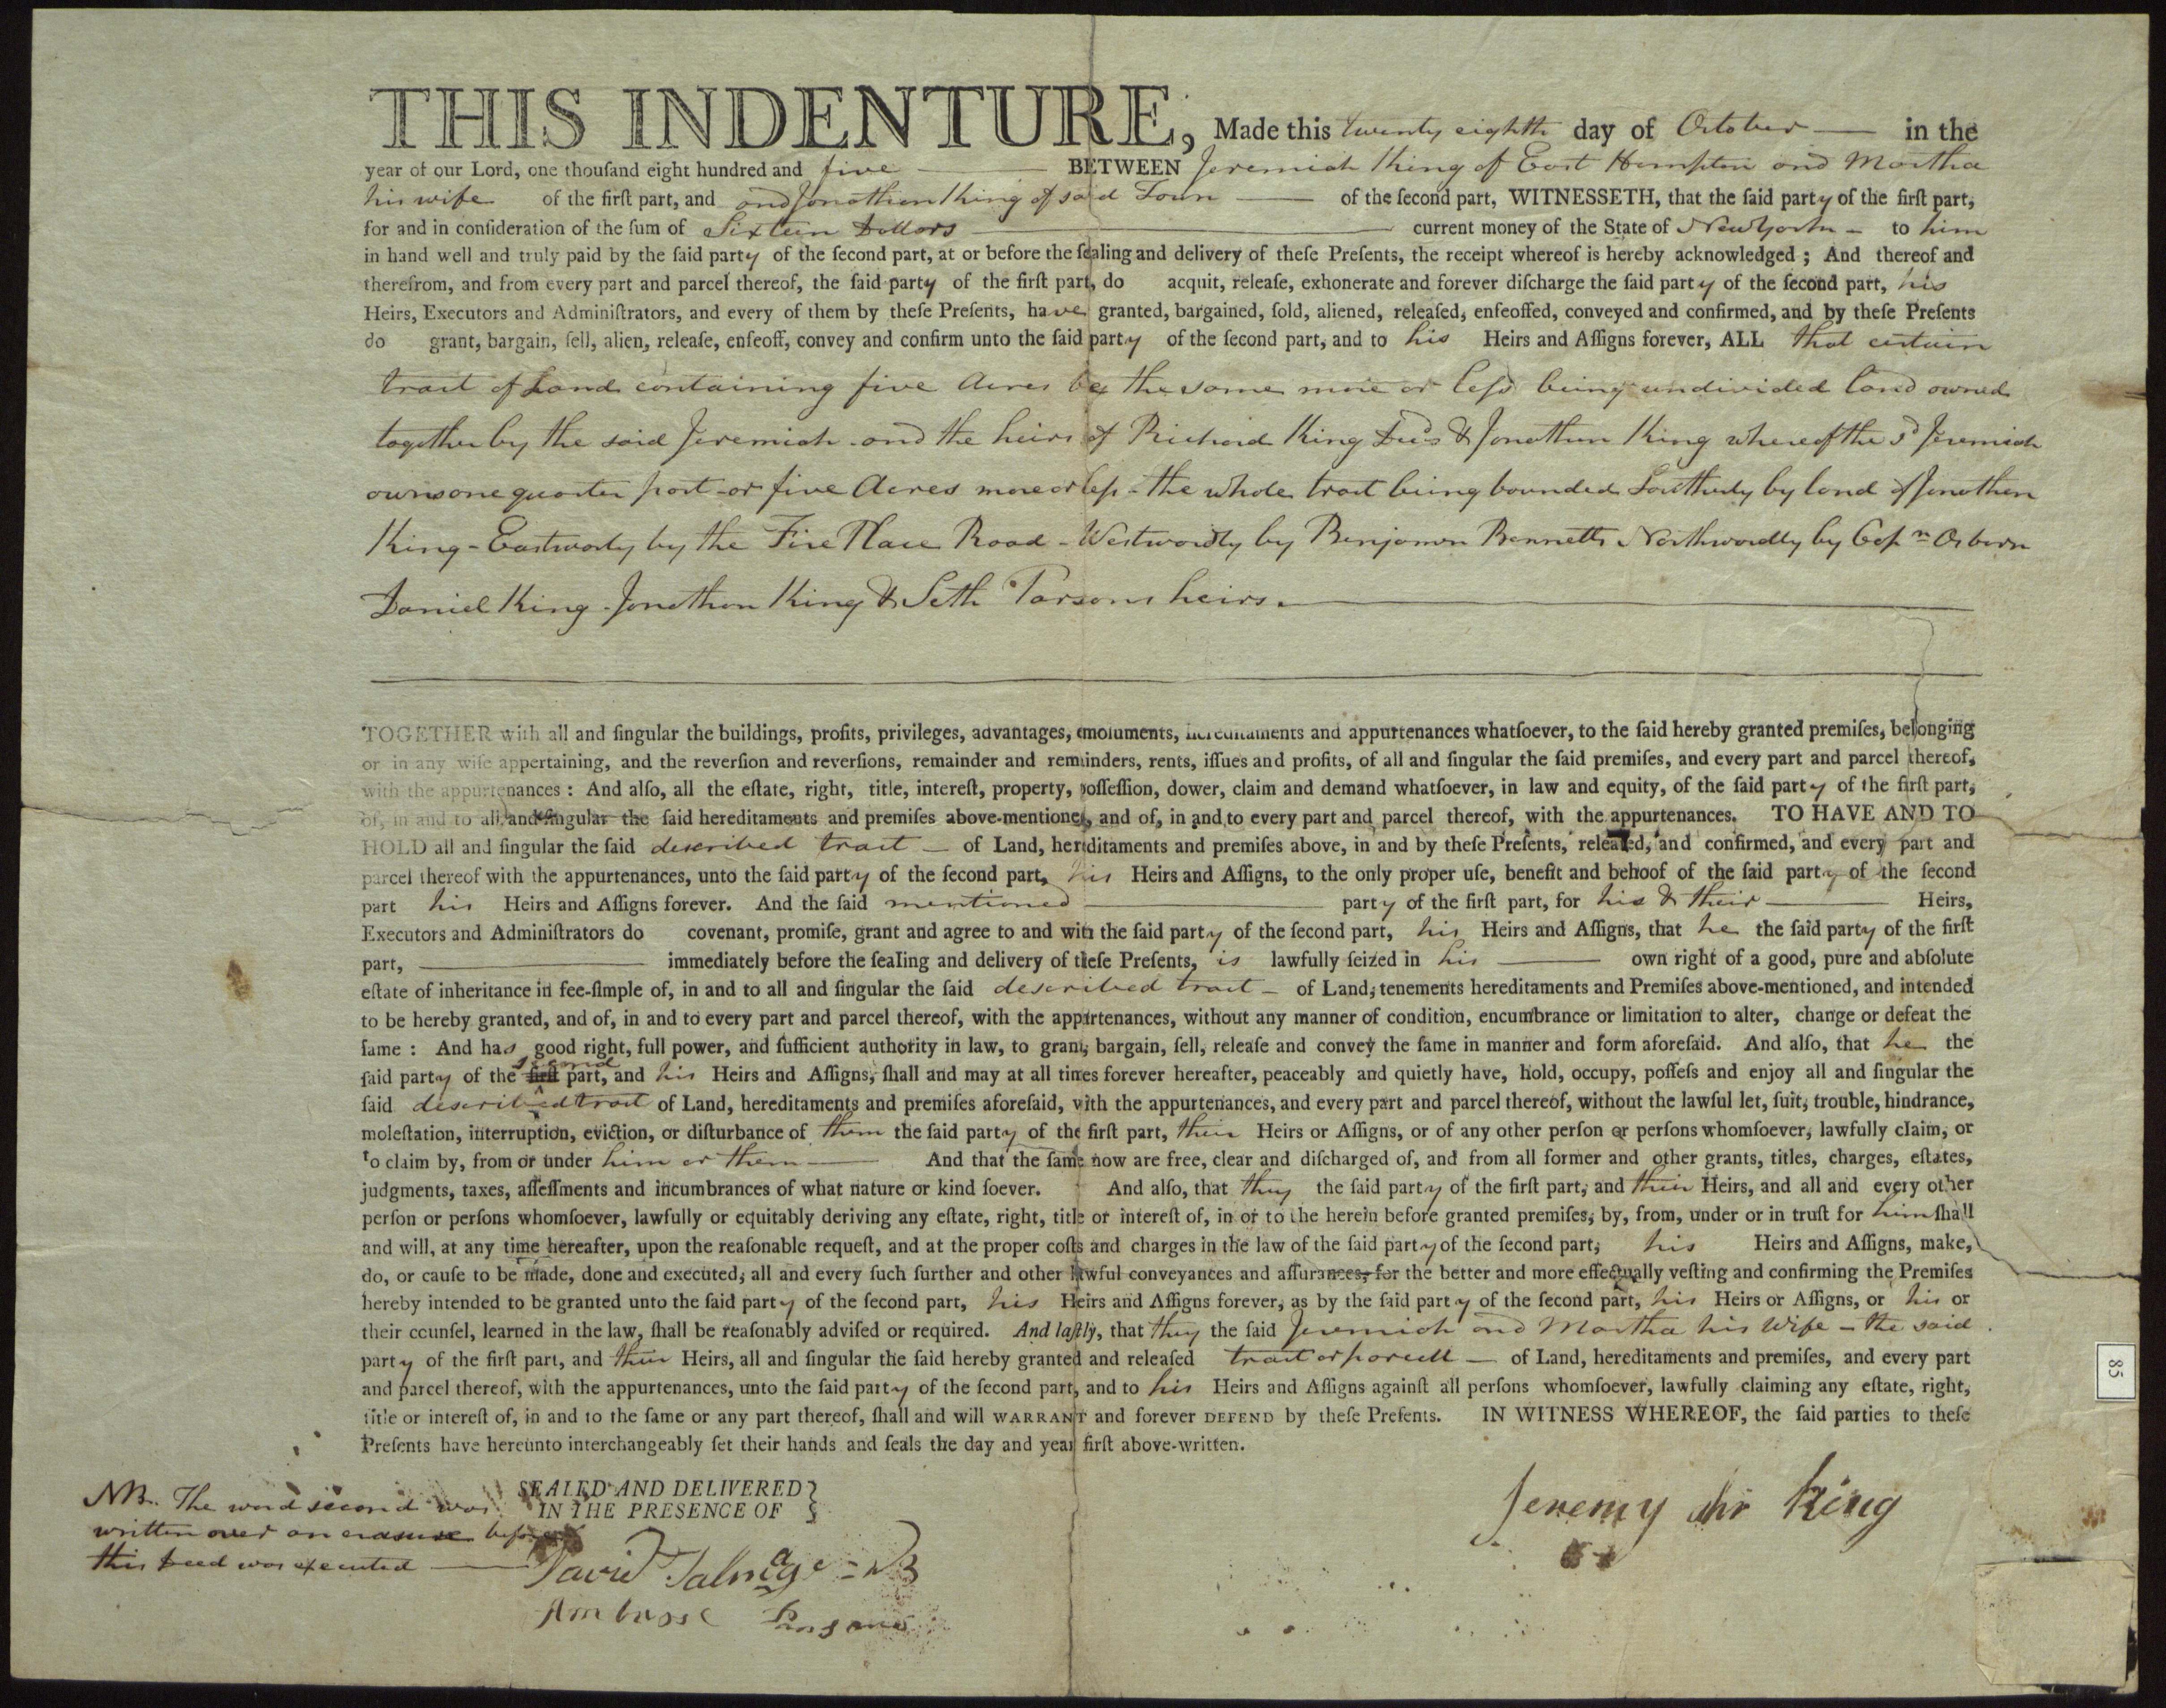 THIS INDENTURE, Made this twenty eighth day of October — in the
year of our Lord, one thouſand eight hundred and five — BETWEEN Jeremiah King of East Hampton and Martha
his wife of the firſt part, and and Jonathan King of said Town — of the ſecond part, WITNESSETH, that the ſaid party of the firſt part,
for and in conſideration of the ſum of Sixteen Dollars — current money of the State of New York – to him
in hand well and truly paid by the ſaid party of the ſecond part, at or before the ſealing and delivery of theſe Preſents, the receipt whereof is hereby acknowledged ; And thereof and
therefrom, and from every part and parcel thereof, the ſaid party of the firſt part, do acquit, releaſe, exhonerate and forever diſcharge the ſaid party of the ſecond part, his
Heirs, Executors and Adminiſtrators, and every of them by theſe Preſents, have granted, bargained, ſold, aliened, releaſed, enfeoffed, conveyed and confirmed, and by theſe Preſents
do grant, bargain, ſell, alien, releaſe, enfeoff, convey and confirm unto the ſaid party of the ſecond part, and to his Heirs and Aſſigns forever, ALL that certain
tract of Land containing five Acres be the same more or leſs being undivided land owned
together by the said Jeremiah and the heirs of Richard King Decd & Jonathan King whereof the sd Jeremiah
owns one quarter part – or five Acres more or leſs – the whole tract being bounded Southerly by land of Jonathan
King – Eastwardly by the Fire Place Road – Westwardly by Benjamin Bennetts Northwardly by Capn Osborn
Daniel King – Jonathan King & Seth Parsons heirs. —
TOGETHER with all and ſingular the buildings, profits, privileges, advantages, emoluments, hereditaments and appurtenances whatſoever, to the ſaid hereby granted premiſes, belonging
or in any wiſe appertaining, and the reverſion and reverſions, remainder and remainders, rents, iſſues and profits, of all and ſingular the ſaid premiſes, and every part and parcel thereof,
with the appurtenances : And alſo, all the eſtate, right, title, intereſt, property, poſſeſſion, dower, claim and demand whatſoever, in law and equity, of the ſaid party of the firſt part,
of, in and to all and ſingular the ſaid hereditaments and premiſes above-mentioned, and of, in and to every part and parcel thereof, with the appurtenances. TO HAVE AND TO
HOLD all and ſingular the ſaid described tract — of Land, hereditaments and premiſes above, in and by theſe Preſents, releaſed, and confirmed, and every part and
parcel thereof with the appurtenances, unto the ſaid party of the ſecond part, his Heirs and Aſſigns, to the only proper uſe, benefit and behoof of the ſaid party of the ſecond
part his Heirs and Aſſigns forever. And the ſaid mentioned — party of the firſt part, for his & their — Heirs,
Executors and Adminiſtrators do covenant, promiſe, grant and agree to and with the ſaid party of the ſecond part, his Heirs and Aſſigns, that he the ſaid party of the firſt
part, — immediately before the ſealing and delivery of theſe Preſents, is lawfully ſeized in his — own right of a good, pure and abſolute
eſtate of inheritance in fee-ſimple of, in and to all and ſingular the ſaid described tract – of Land, tenements hereditaments and Premiſes above-mentioned, and intended
to be hereby granted, and of, in and to every part and parcel thereof, with the appurtenances, without any manner of condition, encumbrance or limitation to alter, change or defeat the
ſame : And has good right, full power, and ſufficient authority in law, to grant, bargain, ſell, releaſe and convey the ſame in manner and form aforeſaid. And alſo, that he the
ſaid party of the firſt second part, and his Heirs and Aſſigns, ſhall and may at all times forever hereafter, peaceably and quietly have, hold, occupy, poſſeſs and enjoy all and ſingular the
ſaid described tract of Land, hereditaments and premiſes aforeſaid, with the appurtenances, and every part and parcel thereof, without the lawful let, ſuit, trouble, hindrance,
moleſtation, interruption, eviction, or diſturbance of them the ſaid party of the firſt part, their Heirs or Aſſigns, or of any other perſon or perſons whomſoever, lawfully claim, or
to claim by, from or under him or them — And that the ſame now are free, clear and diſcharged of, and from all former and other grants, titles, charges, eſtates,
judgments, taxes, aſſeſſments and incumbrances of what nature or kind ſoever. And alſo, that they the ſaid party of the firſt part, and their Heirs, and all and every other
perſon or perſons whomſoever, lawfully or equitably deriving any eſtate, right, title or intereſt of, in or to the herein before granted premiſes, by, from, under or in truſt for him ſhall
and will, at any time hereafter, upon the reaſonable requeſt, and at the proper coſts and charges in the law of the ſaid party of the ſecond part, his Heirs and Aſſigns, make,
do, or cauſe to be made, done and executed, all and every ſuch further and other lawful conveyances and aſſurances, for the better and more effectually veſting and confirming the Premiſes
hereby intended to be granted unto the ſaid party of the ſecond part, his Heirs and Aſſigns forever, as by the ſaid party of the ſecond part, his Heirs or Aſſigns, or his or
their counſel, learned in the law, ſhall be reaſonably adviſed or required. And laſtly, that they the ſaid Jeremiah and Martha his Wife – the said
party of the firſt part, and their Heirs, all and ſingular the ſaid hereby granted and releaſed tract or parcell — of Land, hereditaments and premiſes, and every part
and parcel thereof, with the appurtenances, unto the ſaid party of the ſecond part, and to his Heirs and Aſſigns againſt all perſons whomſoever, lawfully claiming any eſtate, right,
title or intereſt of, in and to the ſame or any part thereof, ſhall and will WARRANT and forever DEFEND by theſe Preſents. IN WITNESS WHEREOF, the ſaid parties to theſe
Preſents have hereunto interchangeably ſet their hands and ſeals the day and year firſt above-written.
SEALED AND DELIVERED
IN THE PRESENCE OF
NB. The word second was
written over an erasure before
this Deed was executed —
David Talmage
Ambrose Parsons
Jeremy King
85